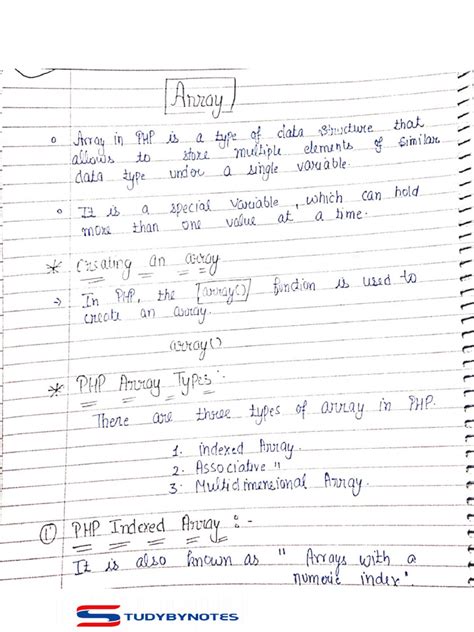 Array
o Array in PHP is a type of data structure that
allows to store multiple elements of similar
data type under a single variable.
o It is a special variable, which can hold
more than one value at a time.
* Creating an array
→ In PHP, the [array()] function is used to
create an array.
array()
* PHP Array Types :-
There are three types of array in PHP.
1. indexed Array.
2. Associative "
3. Multidimensional Array.
① PHP Indexed Array :-
It is also known as " Arrays with a
numeric index".
STUDYBYNOTES